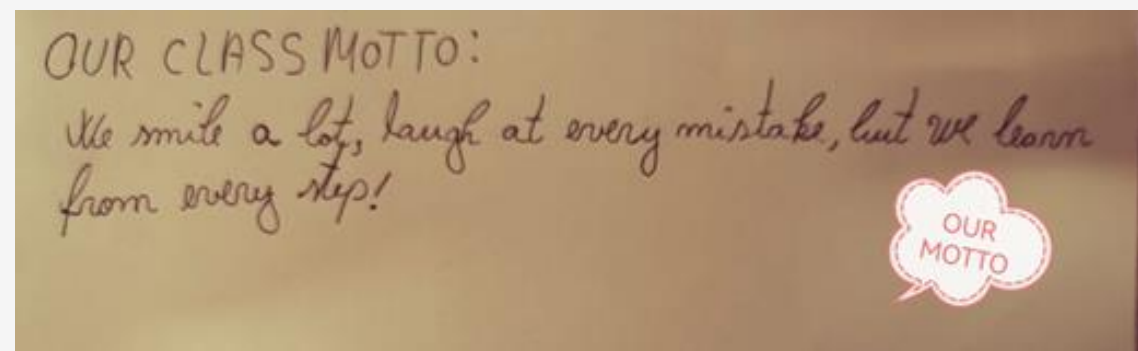 OUR CLASS MOTTO:
We smile a lot, laugh at every mistake, but we learn
from every step!
OUR
MOTTO